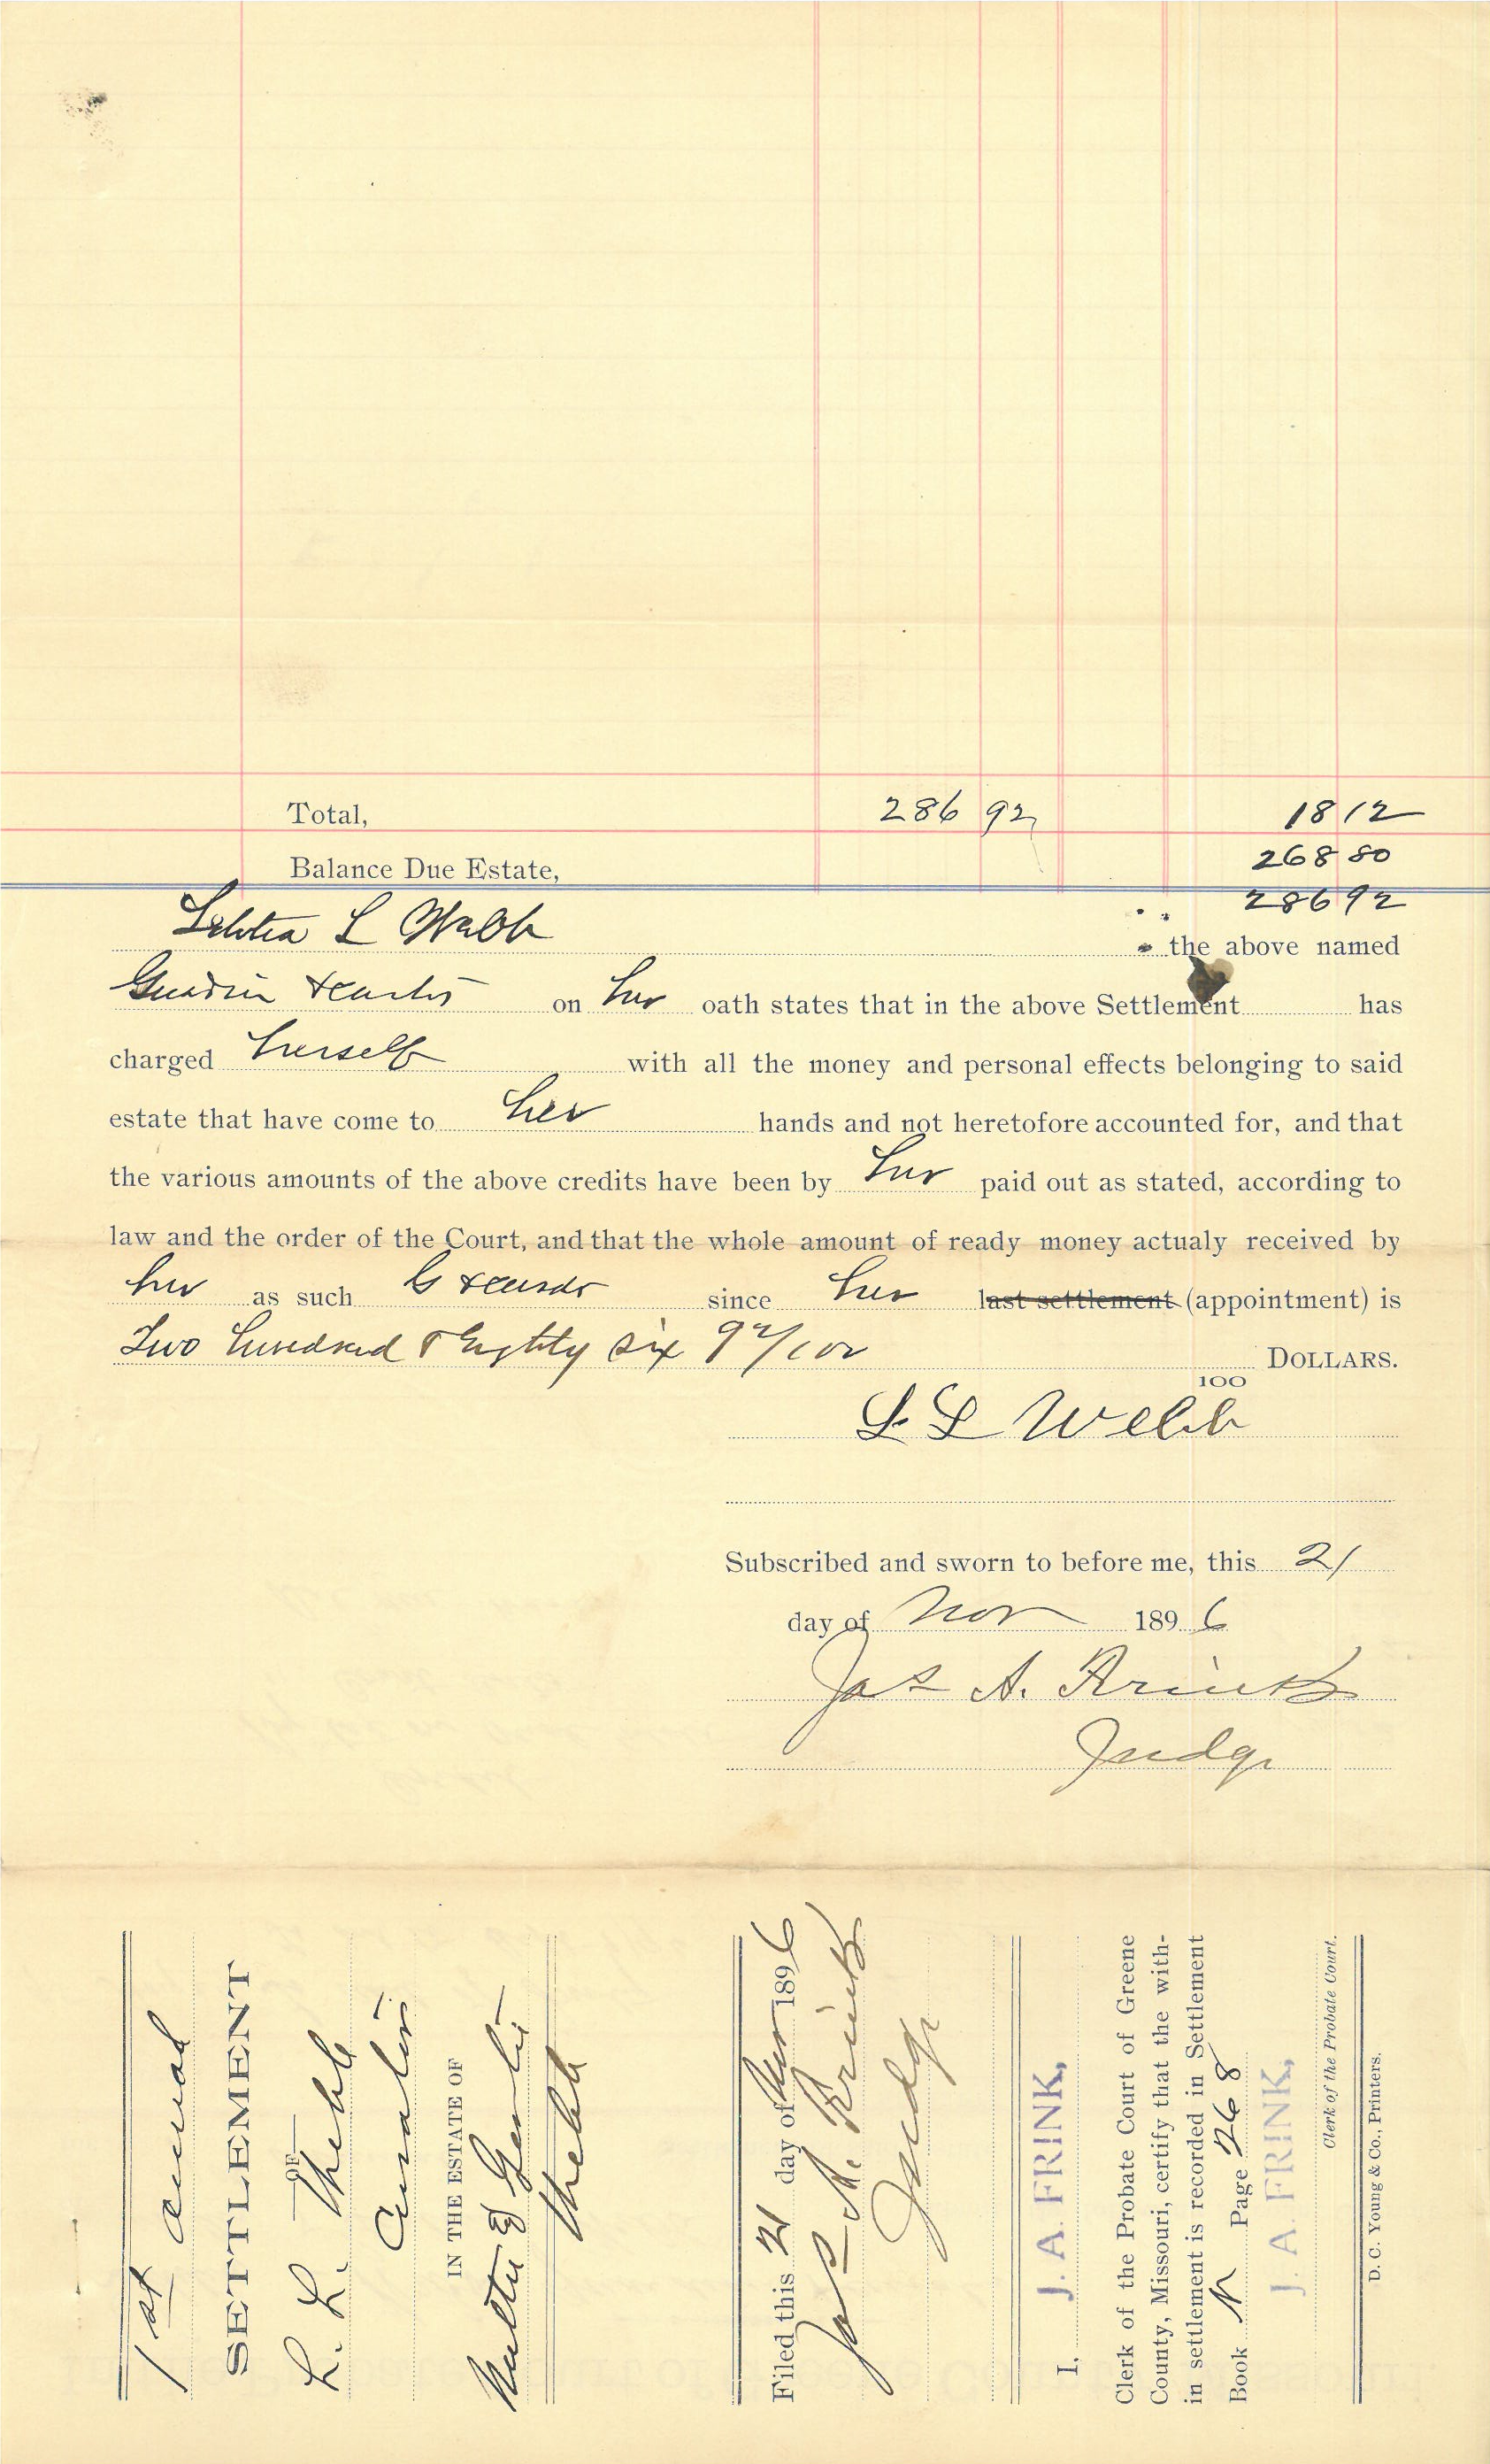 Total, 286 92 18 12
Balance Due Estate, 268 80
286 92
L Webb
the above named
on her oath states that in the above Settlement has
charged herself with all the money and personal effects belonging to said
estate that have come to her hands and not heretofore accounted for, and that
the various amounts of the above credits have been by her paid out as stated, according to
law and the order of the Court, and that the whole amount of ready money actualy received by
her as such G since her last settlement (appointment) is
Two hundred & Eighty six 92/100 DOLLARS.
100
L. L Webb
Subscribed and sworn to before me, this 21
day of Nov 1896
Jas A. Frink
Judge
1st annual
SETTLEMENT
OF
L. L. Webb
IN THE ESTATE OF
Webb
Filed this 21 day of Nov 1896
Jas A. Frink
Judge
I, J. A. FRINK,
Clerk of the Probate Court of Greene
County, Missouri, certify that the with-
in settlement is recorded in Settlement
Book N Page 268
J. A. FRINK,
Clerk of the Probate Court.
D. C. Young & Co., Printers.